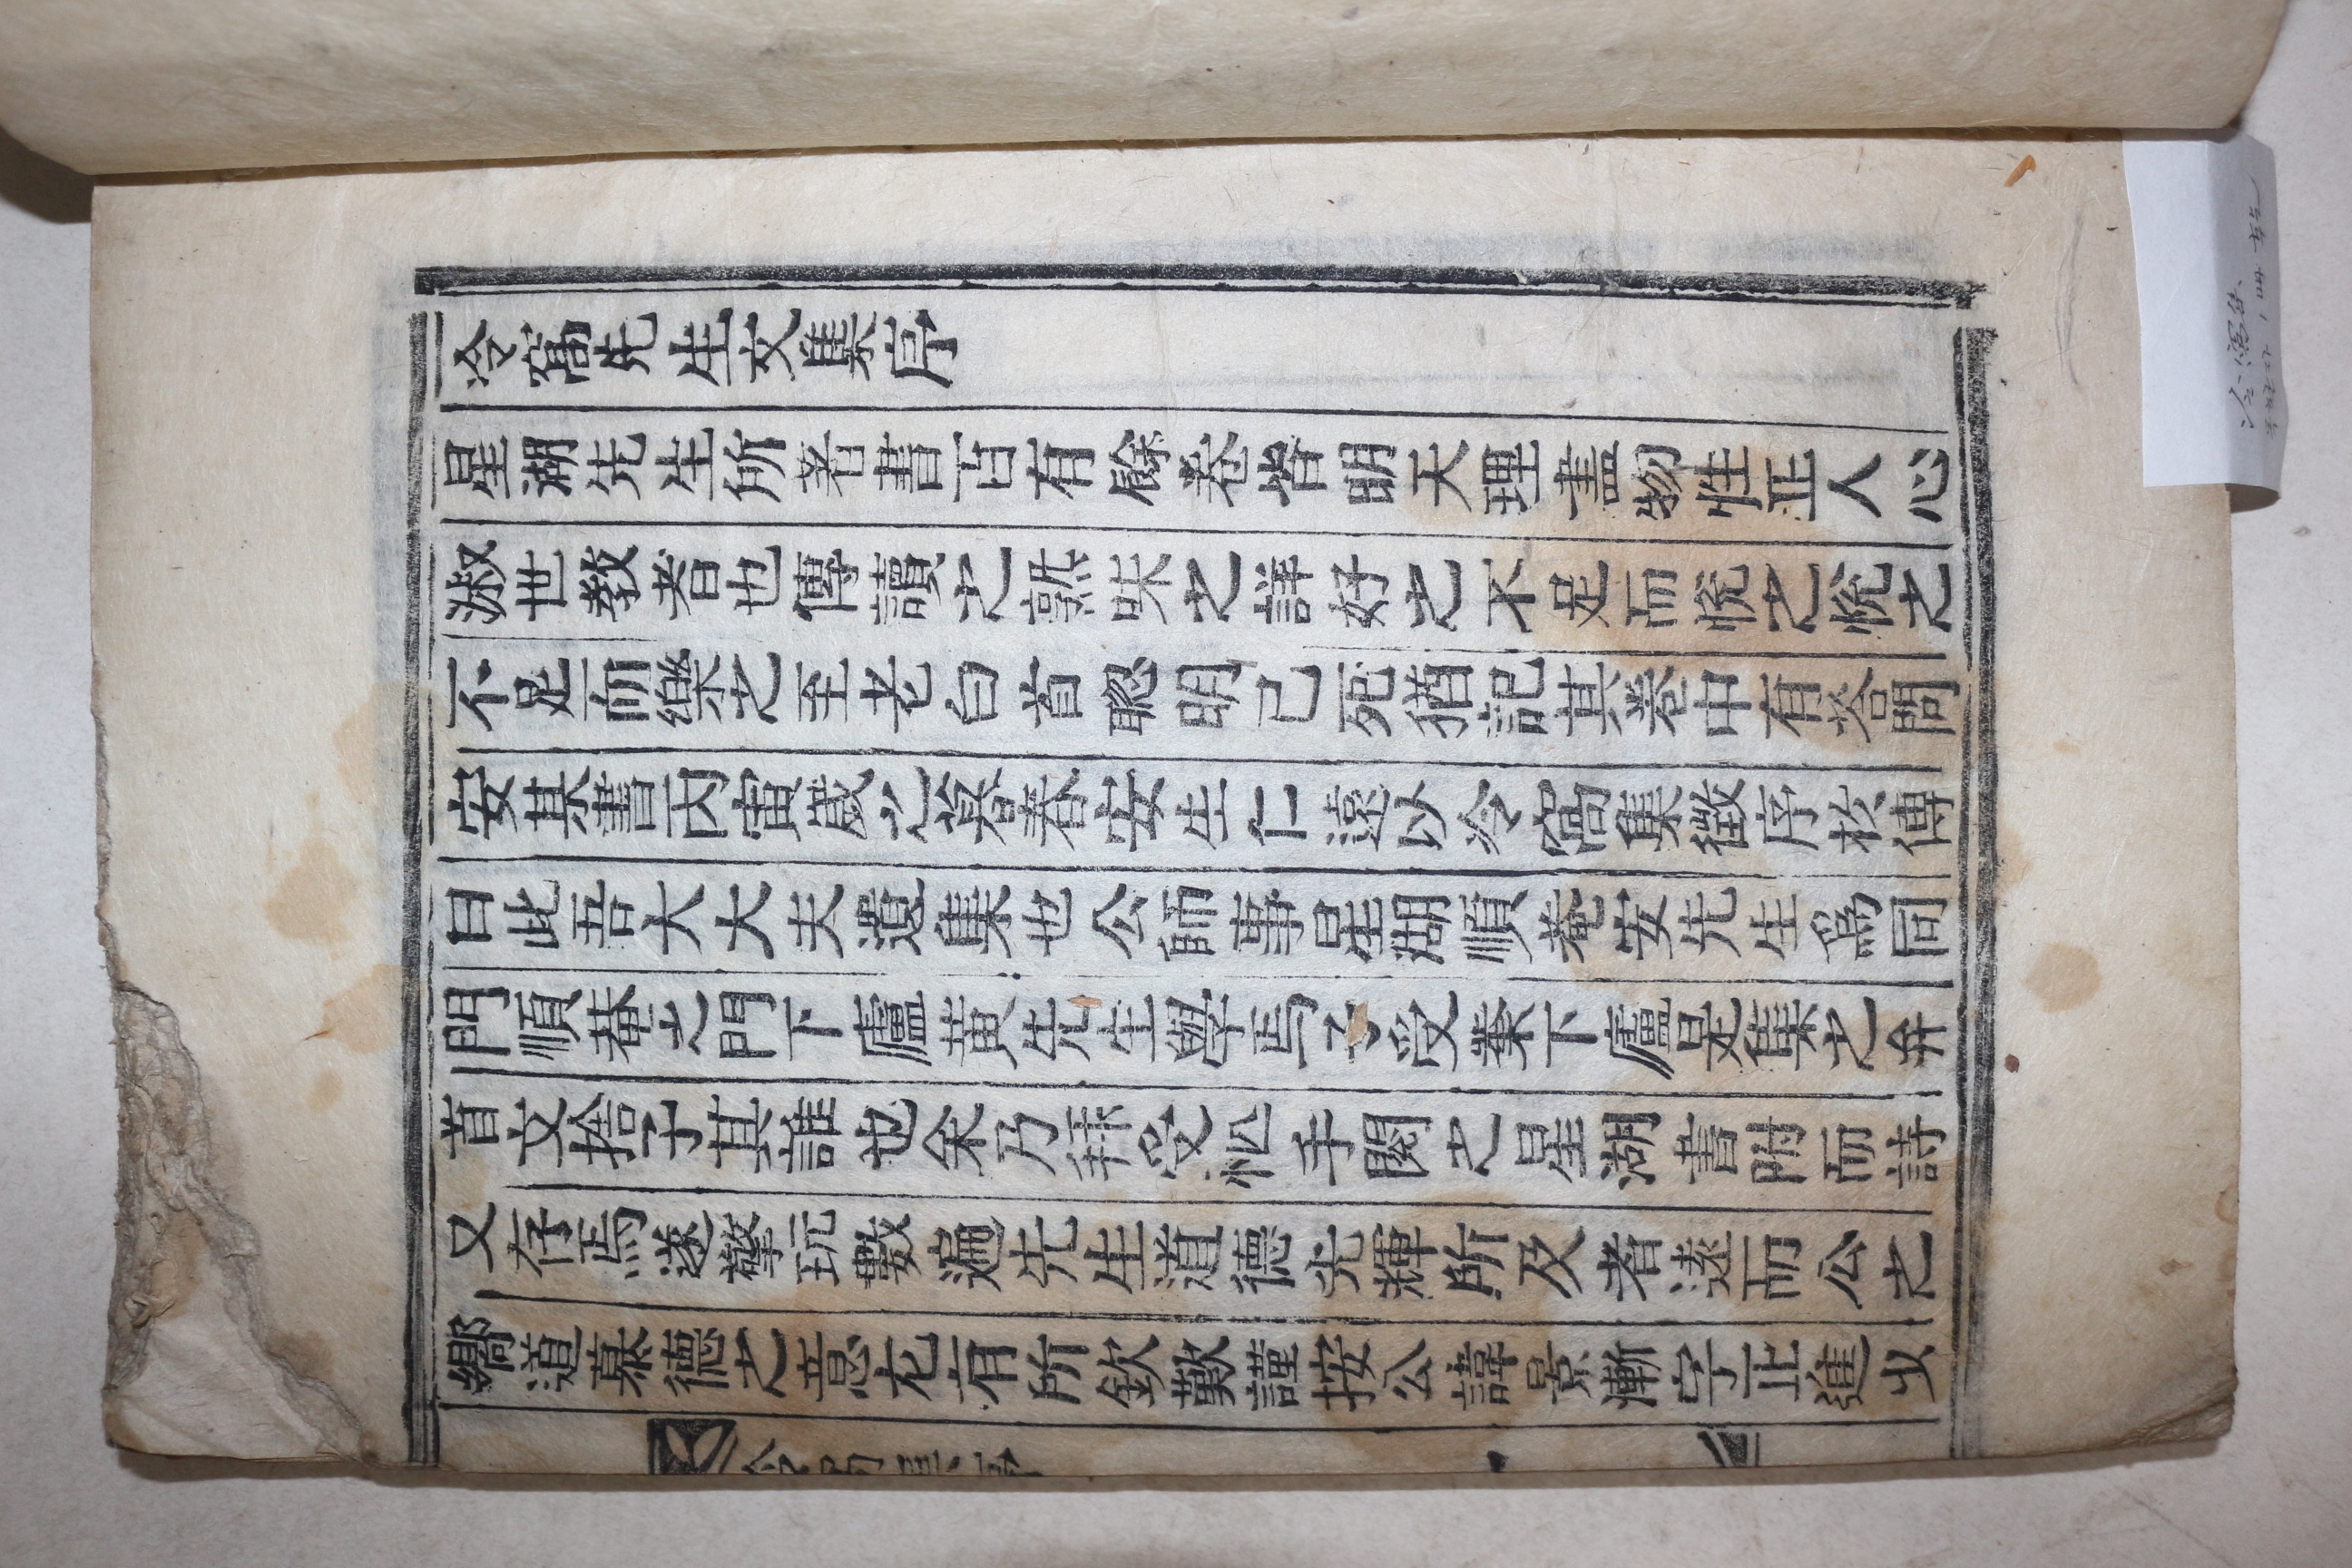 冷窩先生文集序
星湖先生所著書百有餘卷皆明天理盡物性正人心
淑世教者也傳讀之熟味之詳好之不足而悅之悅之
不足而樂之至老白首聰明已死猶記其卷中有答問
安某書丙寅歲之暮春安生仁遠以冷窩集徵序於傳
曰此吾大大夫遺集也公師事星湖順菴安先生爲同
門順菴之門下廬黃先生學焉子受業下廬是集之弁
首文捨子其誰也余乃拜受而手閱之星湖書附而詩
又存焉遂擎玩數遍先生道德光輝所及者遠而公之
嚮道慕德之意尤有所欽歎謹按公諱景漸字正進以
冷窩集序